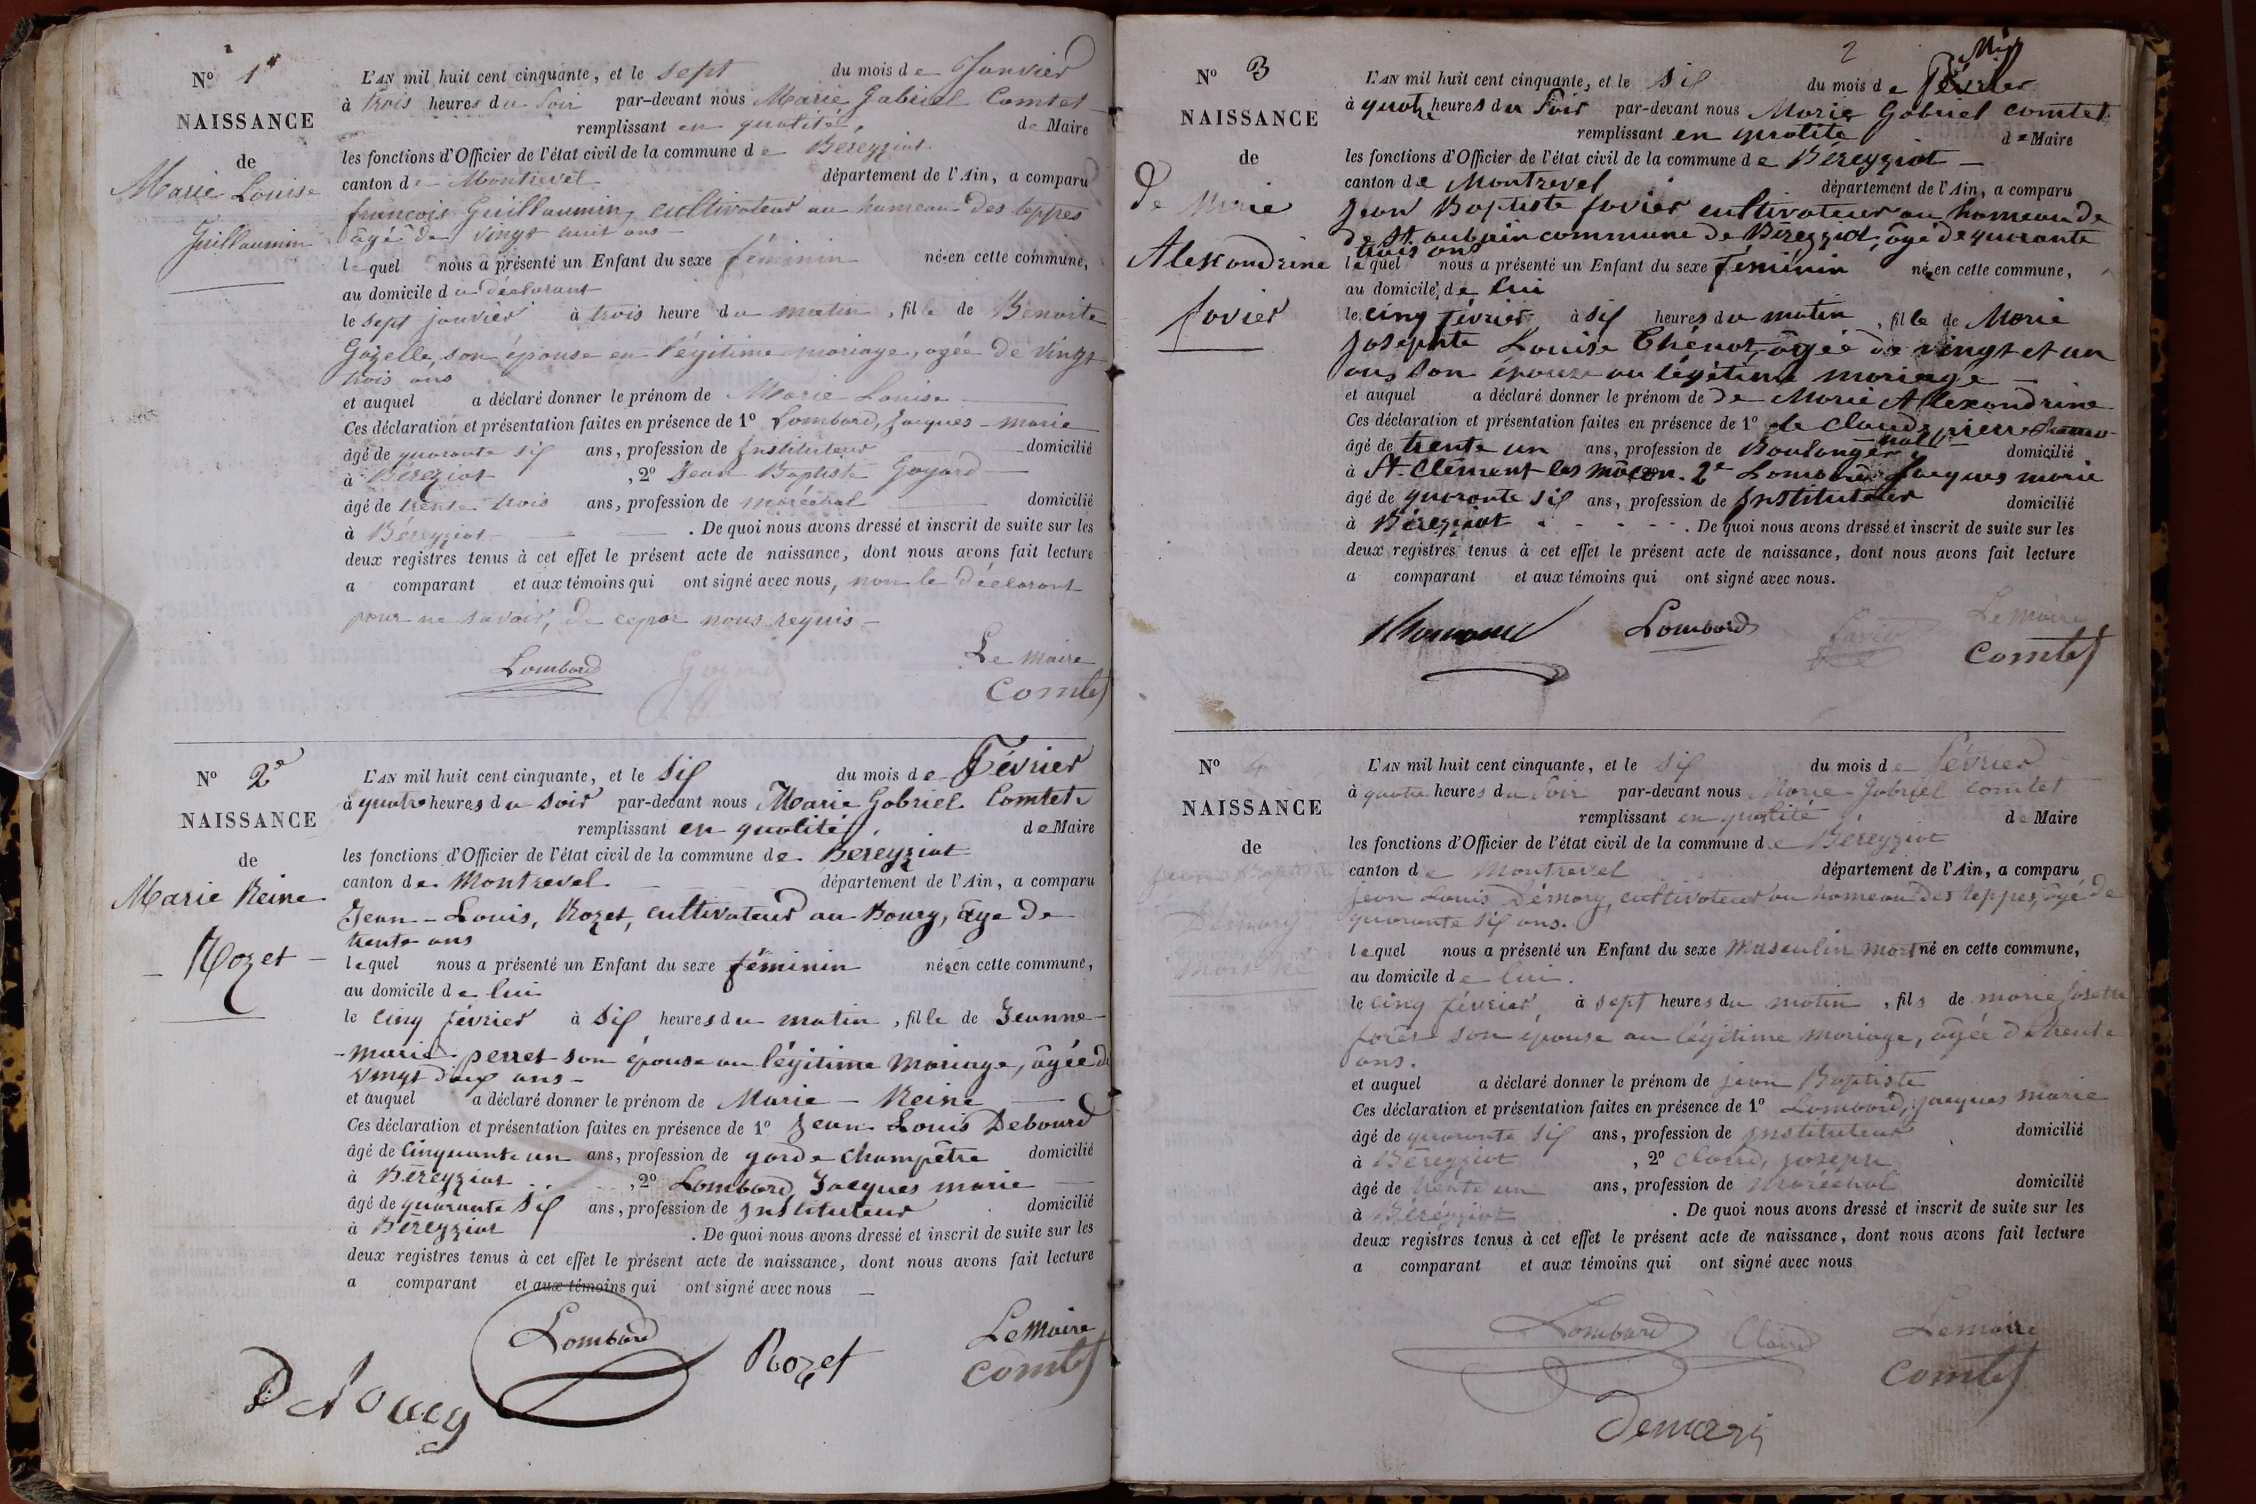 N° 1er
NAISSANCE
de
Marie Louise
Guillaumin
L'AN mil huit cent cinquante, et le sept du mois de Janvier
à trois heures du soir par-devant nous Marie Gabriel Comtet
remplissant en qualité, de Maire
les fonctions d'Officier de l'état civil de la commune de Béreyziat
canton de Montrevel département de l'Ain, a comparu
françois Guillaumin, cultivateur au hameau des teppes
âgé de vingt huit ans
lequel nous a présenté un Enfant du sexe féminin née en cette commune,
au domicile du déclarant
le sept janvier à trois heure du matin, fille de Benoite
Gozelle son épouse en légitime mariage, agée de vingt
trois ans
et auquel a déclaré donner le prénom de Marie Louise
Ces déclaration et présentation faites en présence de 1° Lombard, Jacques-marie
âgé de quarante six ans, profession de Instituteur domicilié
à Béreziat, 2° Jean Baptiste Goyard
âgé de trente trois ans, profession de maréchal domicilié
à Béreyziat. De quoi nous avons dressé et inscrit de suite sur les
deux registres tenus à cet effet le présent acte de naissance, dont nous avons fait lecture
a comparant et aux témoins qui ont signé avec nous, non le déclarant
pour ne savoir, de ce par nous requis
Lombard Goyard Le maire
Comtet
N° 2e
NAISSANCE
de
Marie Reine
Rozet
L'AN mil huit cent cinquante, et le six du mois de Février
à quatre heures du soir par-devant nous Marie Gabriel Comtet
remplissant en qualité, de Maire
les fonctions d'Officier de l'état civil de la commune de Béreyziat
canton de Montrevel département de l'Ain, a comparu
Jean-Louis, Rozet, cultivateur au Bourg, âge de
trente ans
lequel nous a présenté un Enfant du sexe féminin née en cette commune,
au domicile de lui
le cinq février à six heures du matin, fille de Jeanne-
marie perret son épouse au légitime mariage, âgée de
vingt deux ans
et auquel a déclaré donner le prénom de Marie - Reine
Ces déclaration et présentation faites en présence de 1° Jean Louis Debourd
âgé de cinquante un ans, profession de garde champêtre domicilié
à Béreyziat, 2° Lombard Jacques marie
âgé de quarante six ans, profession de Instituteur domicilié
à Béreyziat. De quoi nous avons dressé et inscrit de suite sur les
deux registres tenus à cet effet le présent acte de naissance, dont nous avons fait lecture
a comparant et aux témoins qui ont signé avec nous
Lombard Rozet Le Maire
Comtet
2
N° 3
NAISSANCE
de
de Marie
Alexandrine
favier
L'AN mil huit cent cinquante, et le six du mois de Février
à quatre heures du soir par-devant nous Marie Gabriel Comtet
remplissant en qualité de Maire
les fonctions d'Officier de l'état civil de la commune de Béreyziat
canton de Montrevel département de l'Ain, a comparu
Jean Baptiste favier cultivateur au hameau de
de St. aubain commune de Béreyziat, âgé de quarante
trois ans
lequel nous a présenté un Enfant du sexe féminin née en cette commune,
au domicile de lui
le cinq février à six heures du matin, fille de Marie
Josephte Louise Chénot, âgée de vingt et un
ans son épouse au légitime mariage
et auquel a déclaré donner le prénom de de Marie Alexandrine
Ces déclaration et présentation faites en présence de 1° de Claude pierre
âgé de trente un ans, profession de Boulanger domicilié
à St Clément les macon. 2e Lombard Jacques marie
âgé de quarante six ans, profession de Instituteur domicilié
à Béreziat. De quoi nous avons dressé et inscrit de suite sur les
deux registres tenus à cet effet le présent acte de naissance, dont nous avons fait lecture
a comparant et aux témoins qui ont signé avec nous.
Lombard favier Le Maire
Comtet
N° 4
NAISSANCE
de
jean Baptiste
Démary
mort né
L'AN mil huit cent cinquante, et le six du mois de février
à quatre heures du soir par-devant nous Marie Gabriel Comtet
remplissant en qualité de Maire
les fonctions d'Officier de l'état civil de la commune de Béreyziat
canton de Montrevel département de l'Ain, a comparu
jean Louis Démary, cultivateur au hameau des teppes, âgé de
quarante six ans.
lequel nous a présenté un Enfant du sexe masculin mort né en cette commune,
au domicile de lui.
le cinq février à sept heures du matin, fils de marie josette
forêt son épouse au légitime mariage, âgée de trente
ans.
et auquel a déclaré donner le prénom de jean Baptiste
Ces déclaration et présentation faites en présence de 1° Lombard, jacques marie
âgé de quarante six ans, profession de instituteur domicilié
à Béreyziat, 2° Claird, joseph
âgé de trente un ans, profession de maréchal domicilié
à Béreyziat. De quoi nous avons dressé et inscrit de suite sur les
deux registres tenus à cet effet le présent acte de naissance, dont nous avons fait lecture
a comparant et aux témoins qui ont signé avec nous
Lombard Claird Lemaire
Comtet
demary